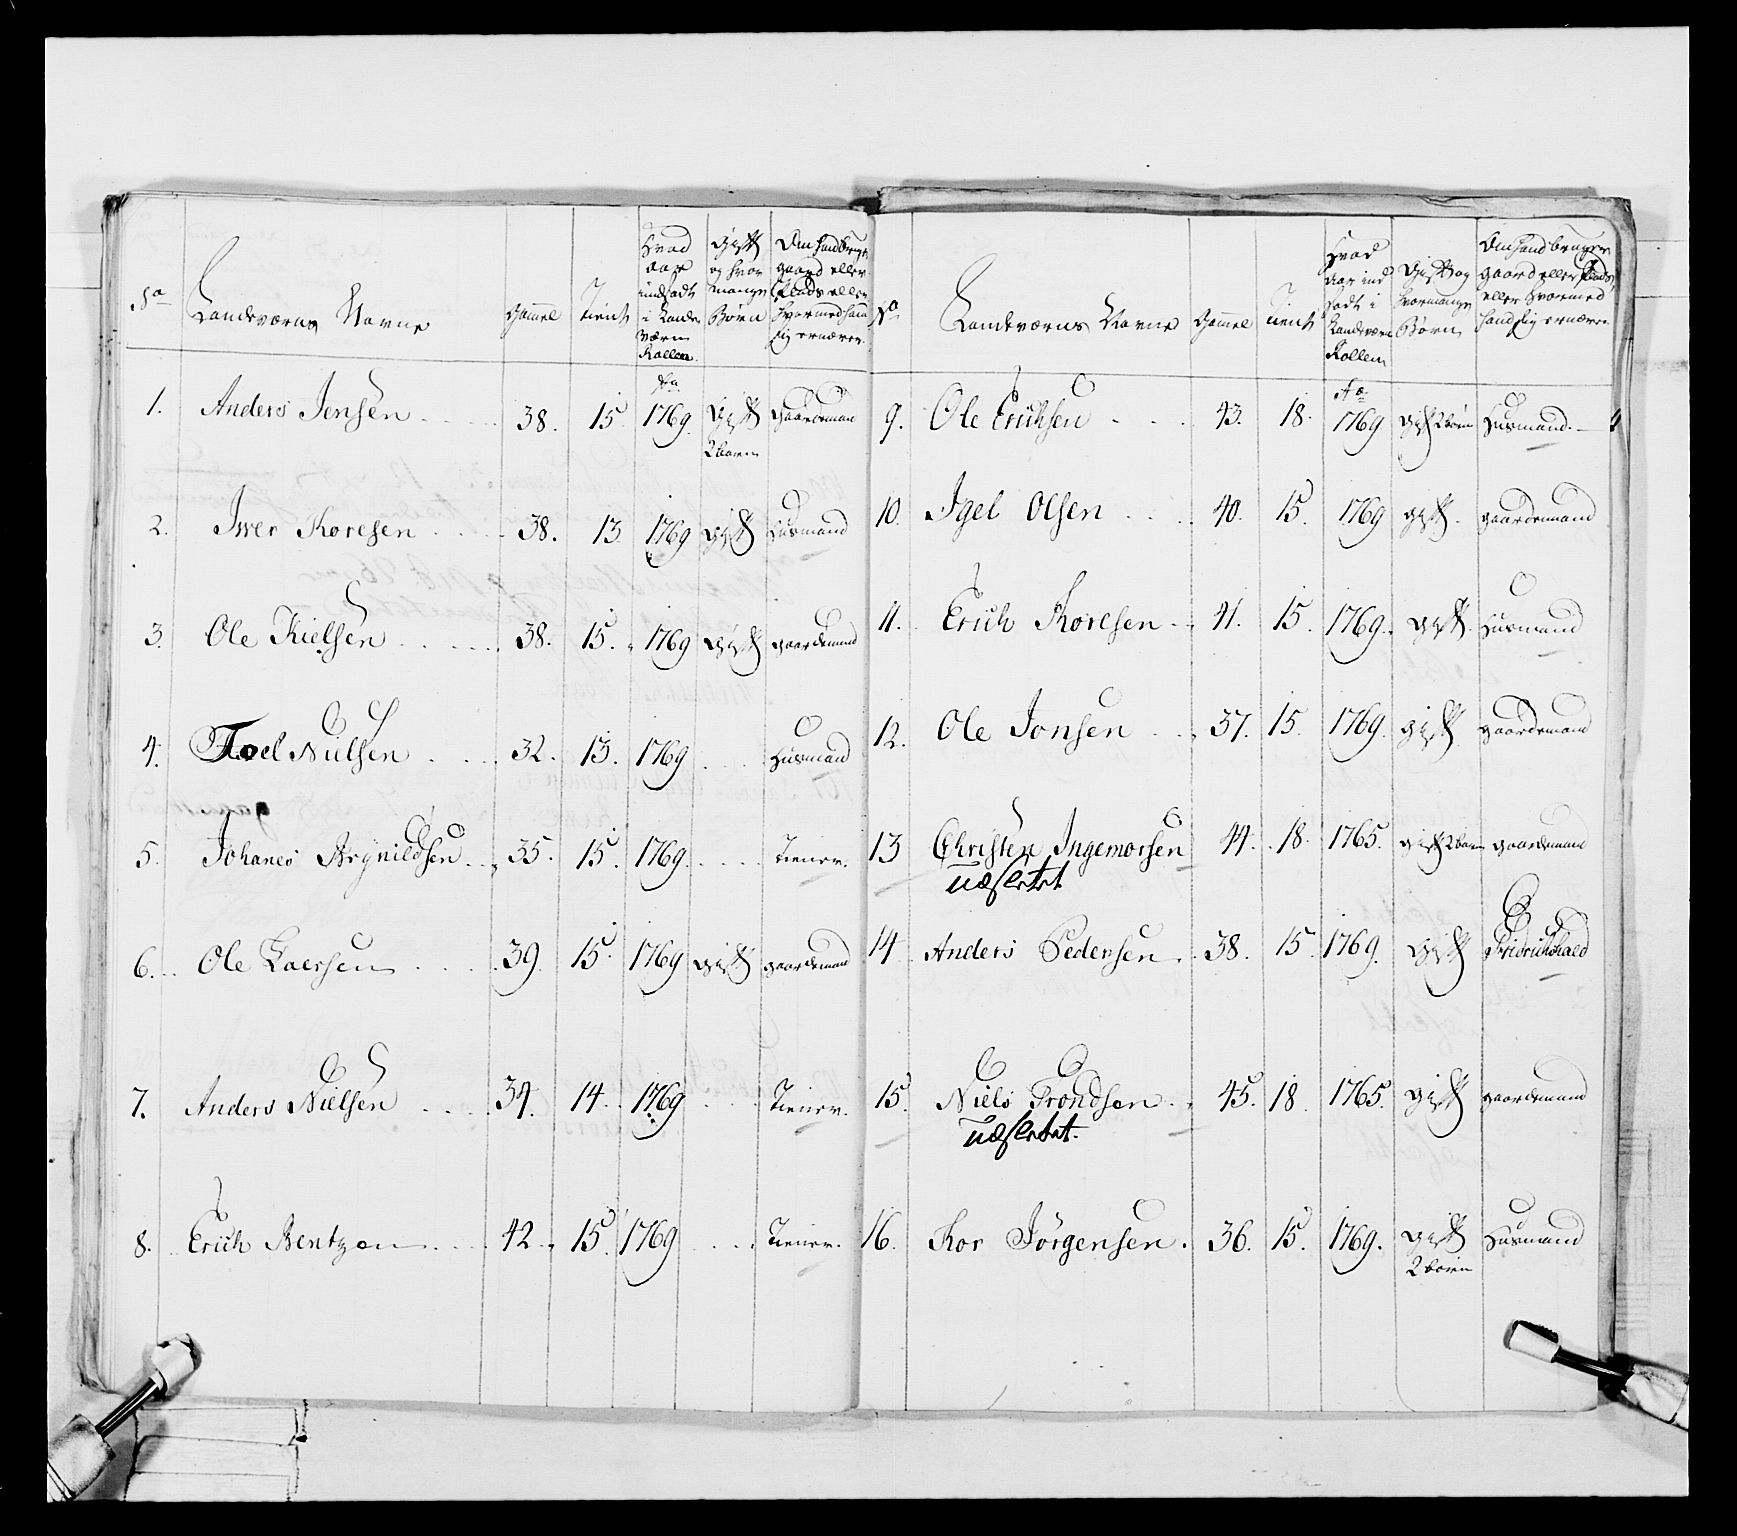 No
Landeværns Navne
Gamel
Tient
Hvad
aar
indsadt
i Lande
værn
Rollen.
Gift
og hvor
mange
Børn
Om hand bruger
gaard eller
Plads eller
hvormed hand
sig ernærer.
1. Anders Jensen 38. 15 Ao 1769 Gift 2 børn gaardemand
2. Iver Thoresen 38. 13 1769 gift Husmand
3. Ole Kielsen 38. 15. 1769 gift gaardemand
4. Joel Nielsen 32. 13. 1769 Husmand
5. Johanes Arynildsen 35. 15. 1769. Tiener.
6. Ole Laersen 39 15. 1769 gift gaardemand
7. Anders Nielsen 34. 14. 1769 Tiener.
8. Erich Bentzen 42. 15. 1769 Tiener.
No
Landeværns Navne
Gamel
Tient
Hvad
Aar ind
sadt i
Landeværn
Rollen
Gift og
hvormange
Børn
Om hand bruger
gaard eller Plads,
eller hvormed
hand sig ernærer
9. Ole Erichsen 43. 18. Ao 1769 gift 2 børn Husmand.
10. Igel Olsen 40. 15. 1769 gift. gaardemand
11. Erich Thoresen 41. 15. 1769. gift. Husmand
12. Ole Jonsen 37. 15. 1769. gift gaardemand
13 Christen Ingemorsen 44. 18. 1765. gift 2 børn gaardemand
udslettet
14 Anders Pedersen 38. 15 1769. Gift Fridrichshald
15. Niels Trondsen 45. 18 1765. gift gaardemand
udslettet.
16. Tor Jørgensen. 36. 15. 1769. gift 2 børn Husmand